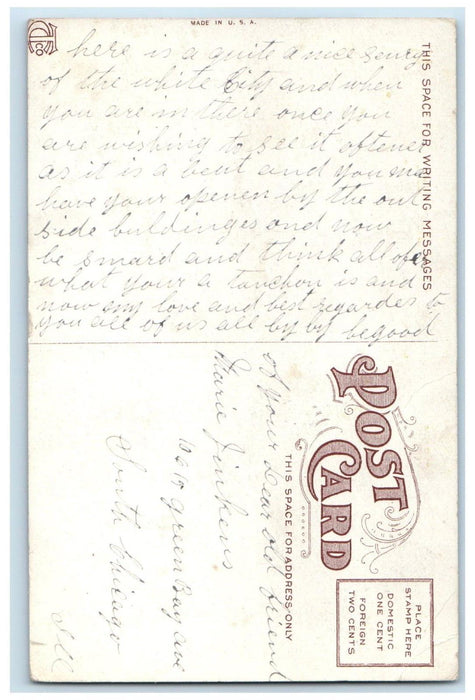 MADE IN U. S. A.
THIS SPACE FOR WRITING MESSAGES
here is a quite a nice senry
of the white City and when
you are in there once you
are wishing to see it oftener
as it is a beut and you
have your openen by the out
side buldinges and now
be smard and think all of
what your a tanchon is and
now my love and best regardes to
you all of us all by by begood
POST CARD
THIS SPACE FOR ADDRESS ONLY
PLACE
STAMP HERE
DOMESTIC
ONE CENT
FOREIGN
TWO CENTS
of your Dear old friend
Marie Jinkens
Green Bay ave
South Chicago
Ill